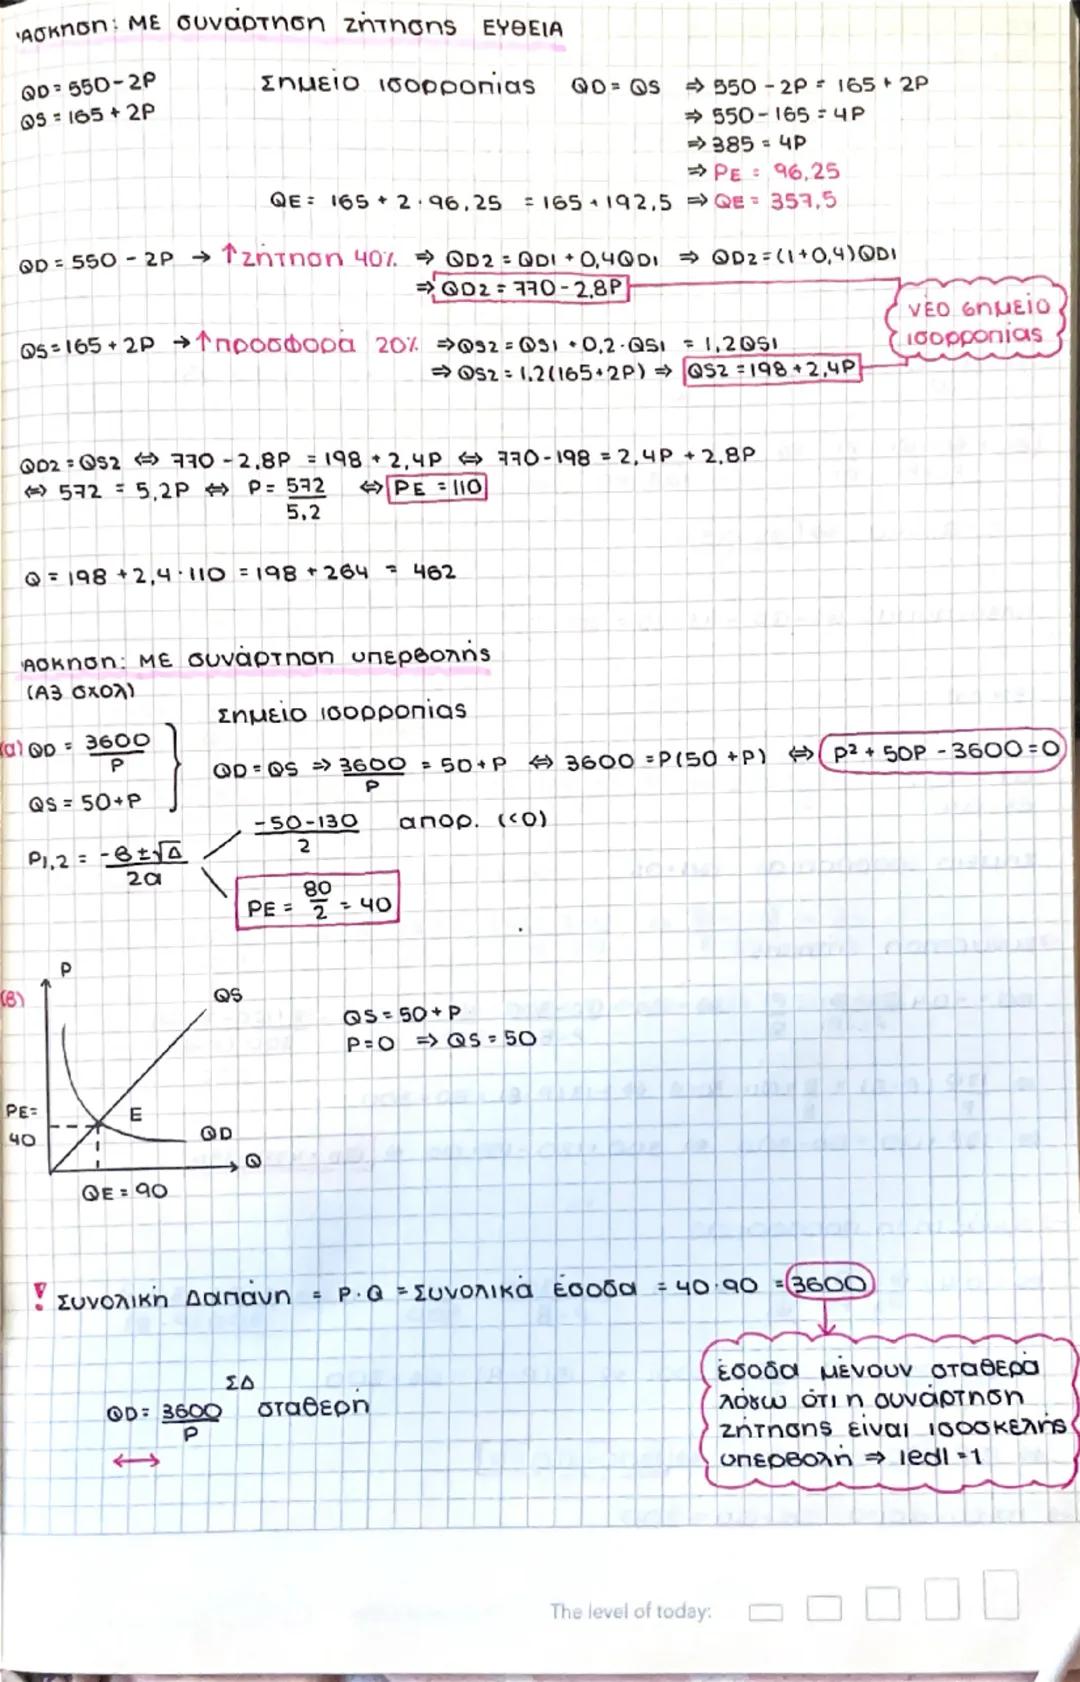 Άσκηση: ΜΕ συνάρτηση ζήτησης ΕΥΘΕΙΑ
QD = 550-2P
QS = 165 + 2P
Σημείο ισορροπίας QD = QS ⇒ 550 - 2P = 165 + 2P
⇒ 550-165 = 4P
⇒ 385 = 4P
⇒ PE = 96,25
QE = 165 + 2·96,25 = 165 + 192,5 ⇒ QE = 357,5
QD = 550 - 2P → ↑ζήτηση 40% ⇒ QD2 = QD1 + 0,4QD1 ⇒ QD2 = (1+0,4)QD1
⇒ QD2 = 770-2,8P
νέο σημείο
ισορροπίας
QS = 165 + 2P → ↑προσφορά 20% ⇒ QS2 = QS1 + 0,2·QS1 = 1,2QS1
⇒ QS2 = 1,2(165+2P) ⇒ QS2 = 198 + 2,4P
QD2 = QS2 ⇔ 770 - 2,8P = 198 + 2,4P ⇔ 770-198 = 2,4P + 2,8P
⇔ 572 = 5,2P ⇔ P = 572/5,2 ⇔ PE = 110
Q = 198 + 2,4·110 = 198 + 264 = 462
Άσκηση: ΜΕ συνάρτηση υπερβολής
(Α3 σχολ)
Σημείο ισορροπίας
(α) QD = 3600/P
QS = 50+P
QD = QS ⇒ 3600/P = 50+P ⇔ 3600 = P(50+P) ⇔ P² + 50P - 3600 = 0
P1,2 = -β±√Δ/2α
-50-130/2 απορ. (<0)
PE = 80/2 = 40
(β)
P
QS
QS = 50 + P
P = 0 ⇒ QS = 50
PE =
40
E
QD
Q
QE = 90
! Συνολική Δαπάνη = P·Q = Συνολικά έσοδα = 40·90 = 3600
έσοδα μένουν σταθερά
λόγω ότι η συνάρτηση
ζήτησης είναι ισοσκελής
υπερβολή ⇒ |ed| = 1
ΣΔ
QD = 3600/P σταθερή
↔
The level of today: